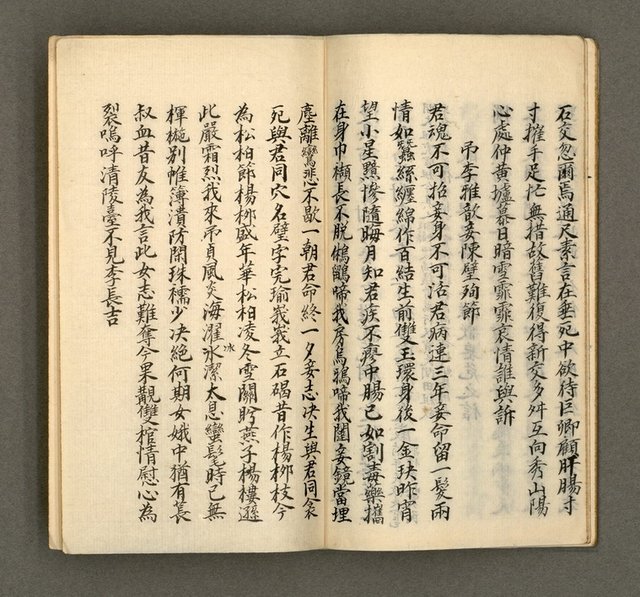 石交忽爾焉通尺素言在垂死中欲待巨卿顧肝腸寸
寸摧手足忙無措故舊難復得新交多舛互向秀山陽
心處仲黃壚暮日暗雲霏霏哀情誰與訴
吊李雅歆妾陳璧殉節
君魂不可招妾身不可活君病連三年妾命留一髮兩
情如蠶絲纏綿作百結生前雙玉環身後一金玦昨宵
望小星黯慘隨晦月知君疾不廖中腸已如割毒藥攜
在身巾櫛長不脫鵂鶹啼我房烏鴉啼我闥妾鏡當埋
塵離鸞悲不歇一朝君命終一夕妾志決生與君同衾
死與君同穴名璧字完瑜峩峩立石碣昔作楊柳枝今
為松柏節楊柳盛年華松柏凌冬雪關盼燕子樓遜
此嚴霜烈我來吊貞風炎海濯冰潔太息蠻髦時已無
楎椸別帷薄潰防閑珠襦少決絕何期女娥中猶有萇
叔血昔友為我言此女志難奪今果覩雙棺情慰心為
裂嗚呼清陵臺不見李長吉